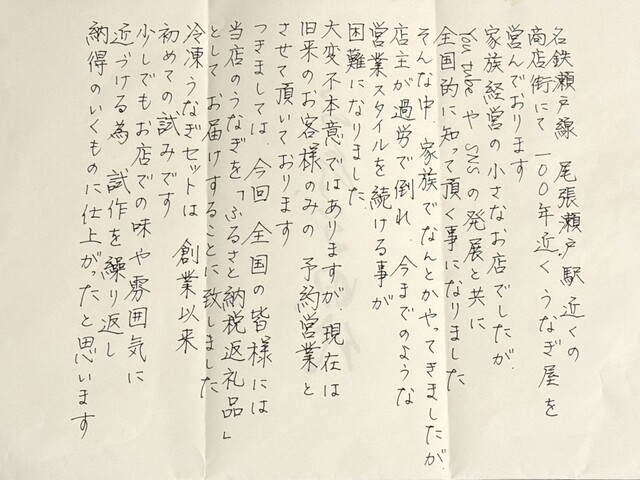 名鉄瀬戸線 尾張瀬戸駅近くの
商店街にて 100年近くうなぎ屋を
営んでおります
家族経営の小さなお店でしたが、
You tubeや SNSの発展と共に
全国的に知って頂く事になりました
そんな中、家族でなんとかやってきましたが、
店主が過労で倒れ、今までのような
営業スタイルを続ける事が
困難になりました
大変不本意ではありますが、現在は
旧来のお客様のみの 予約営業と
させて頂いております
つきましては、今回 全国の皆様には
当店のうなぎを「ふるさと納税返礼品」
としてお届けすることに致しました
冷凍うなぎセットは 創業以来
初めての試みです
少しでもお店での味や雰囲気に
近づける為 試作を繰り返し
納得のいくものに仕上がったと思います